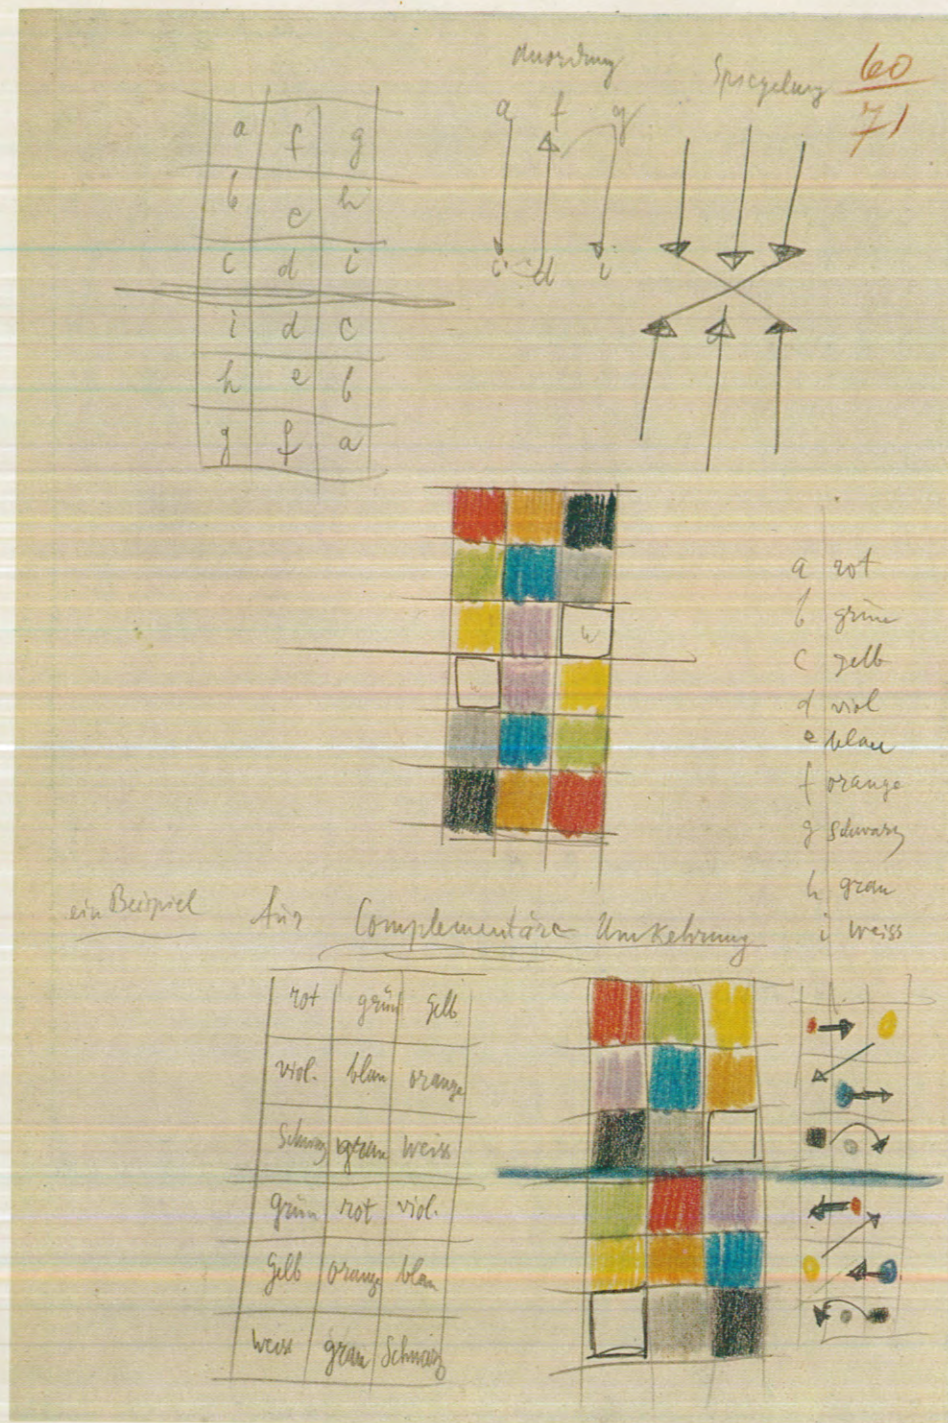 Anordnung
Spiegelung
60
71
a f g
b e h
c d i
i d c
h e b
g f a
a f g
c d i
w
w
a rot
b grün
c gelb
d viol
e blau
f orange
g schwarz
h grau
i weiss
ein Beispiel für Complementäre Umkehrung
rot grün Gelb
viol. blau orange
Schwarz grau weiss
grün rot viol.
Gelb orange blau
weiss grau Schwarz